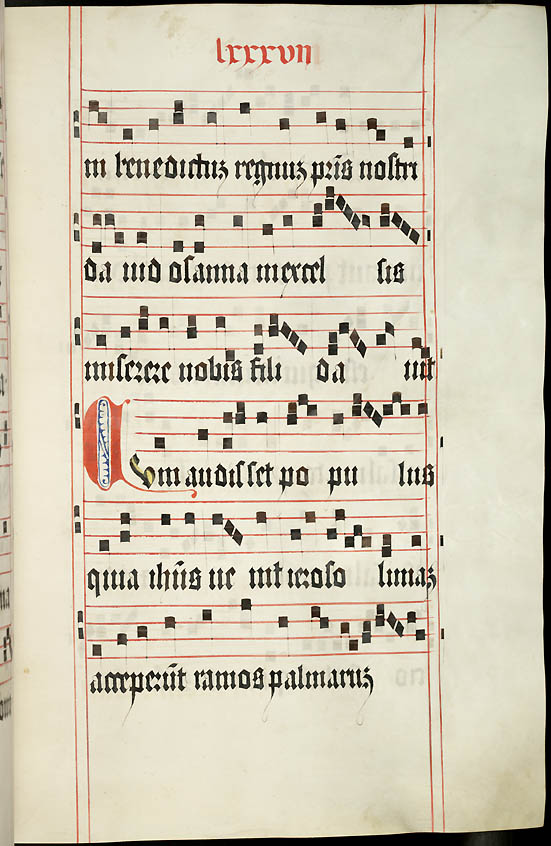 lxxxvii
m benedictuz regnuz pr̄is nostri
da uid osanna in excel sis
miserere nobis fili da uit
Cvm audisset po pu lus
quia ihūs ue nit ieroso limaz
acceperūt ramos palmaruz